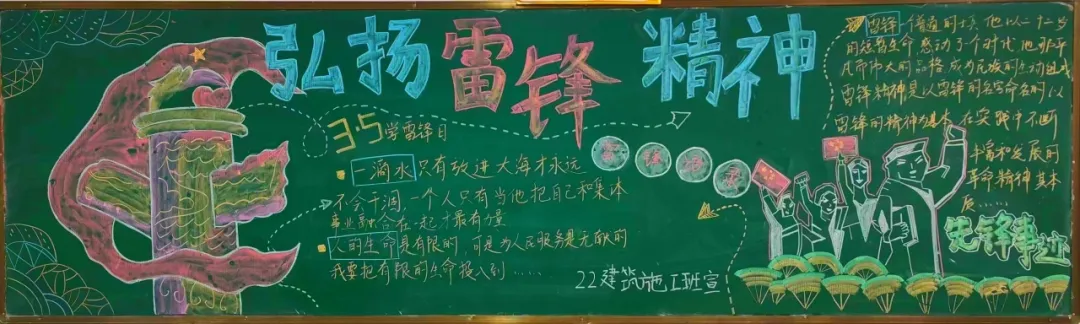 弘扬雷锋精神
3·5学雷锋日
一滴水只有放进大海才永远
不会干涸,一个人只有当他把自己和集体
事业融合在一起才最有力量
人的生命是有限的,可是为人民服务是无限的
我要把有限的生命投入到……
22建筑施工班宣
雷锋一个普通的士兵,他以二十二岁
的短暂生命感动了个时代,他非平
凡而伟大的品格,成为民族的
雷锋精神是以雷锋的名字命名的,以
雷锋的精神为基本,在实践中不断
丰富和发展的
革命精神其基本
质……
先锋事迹